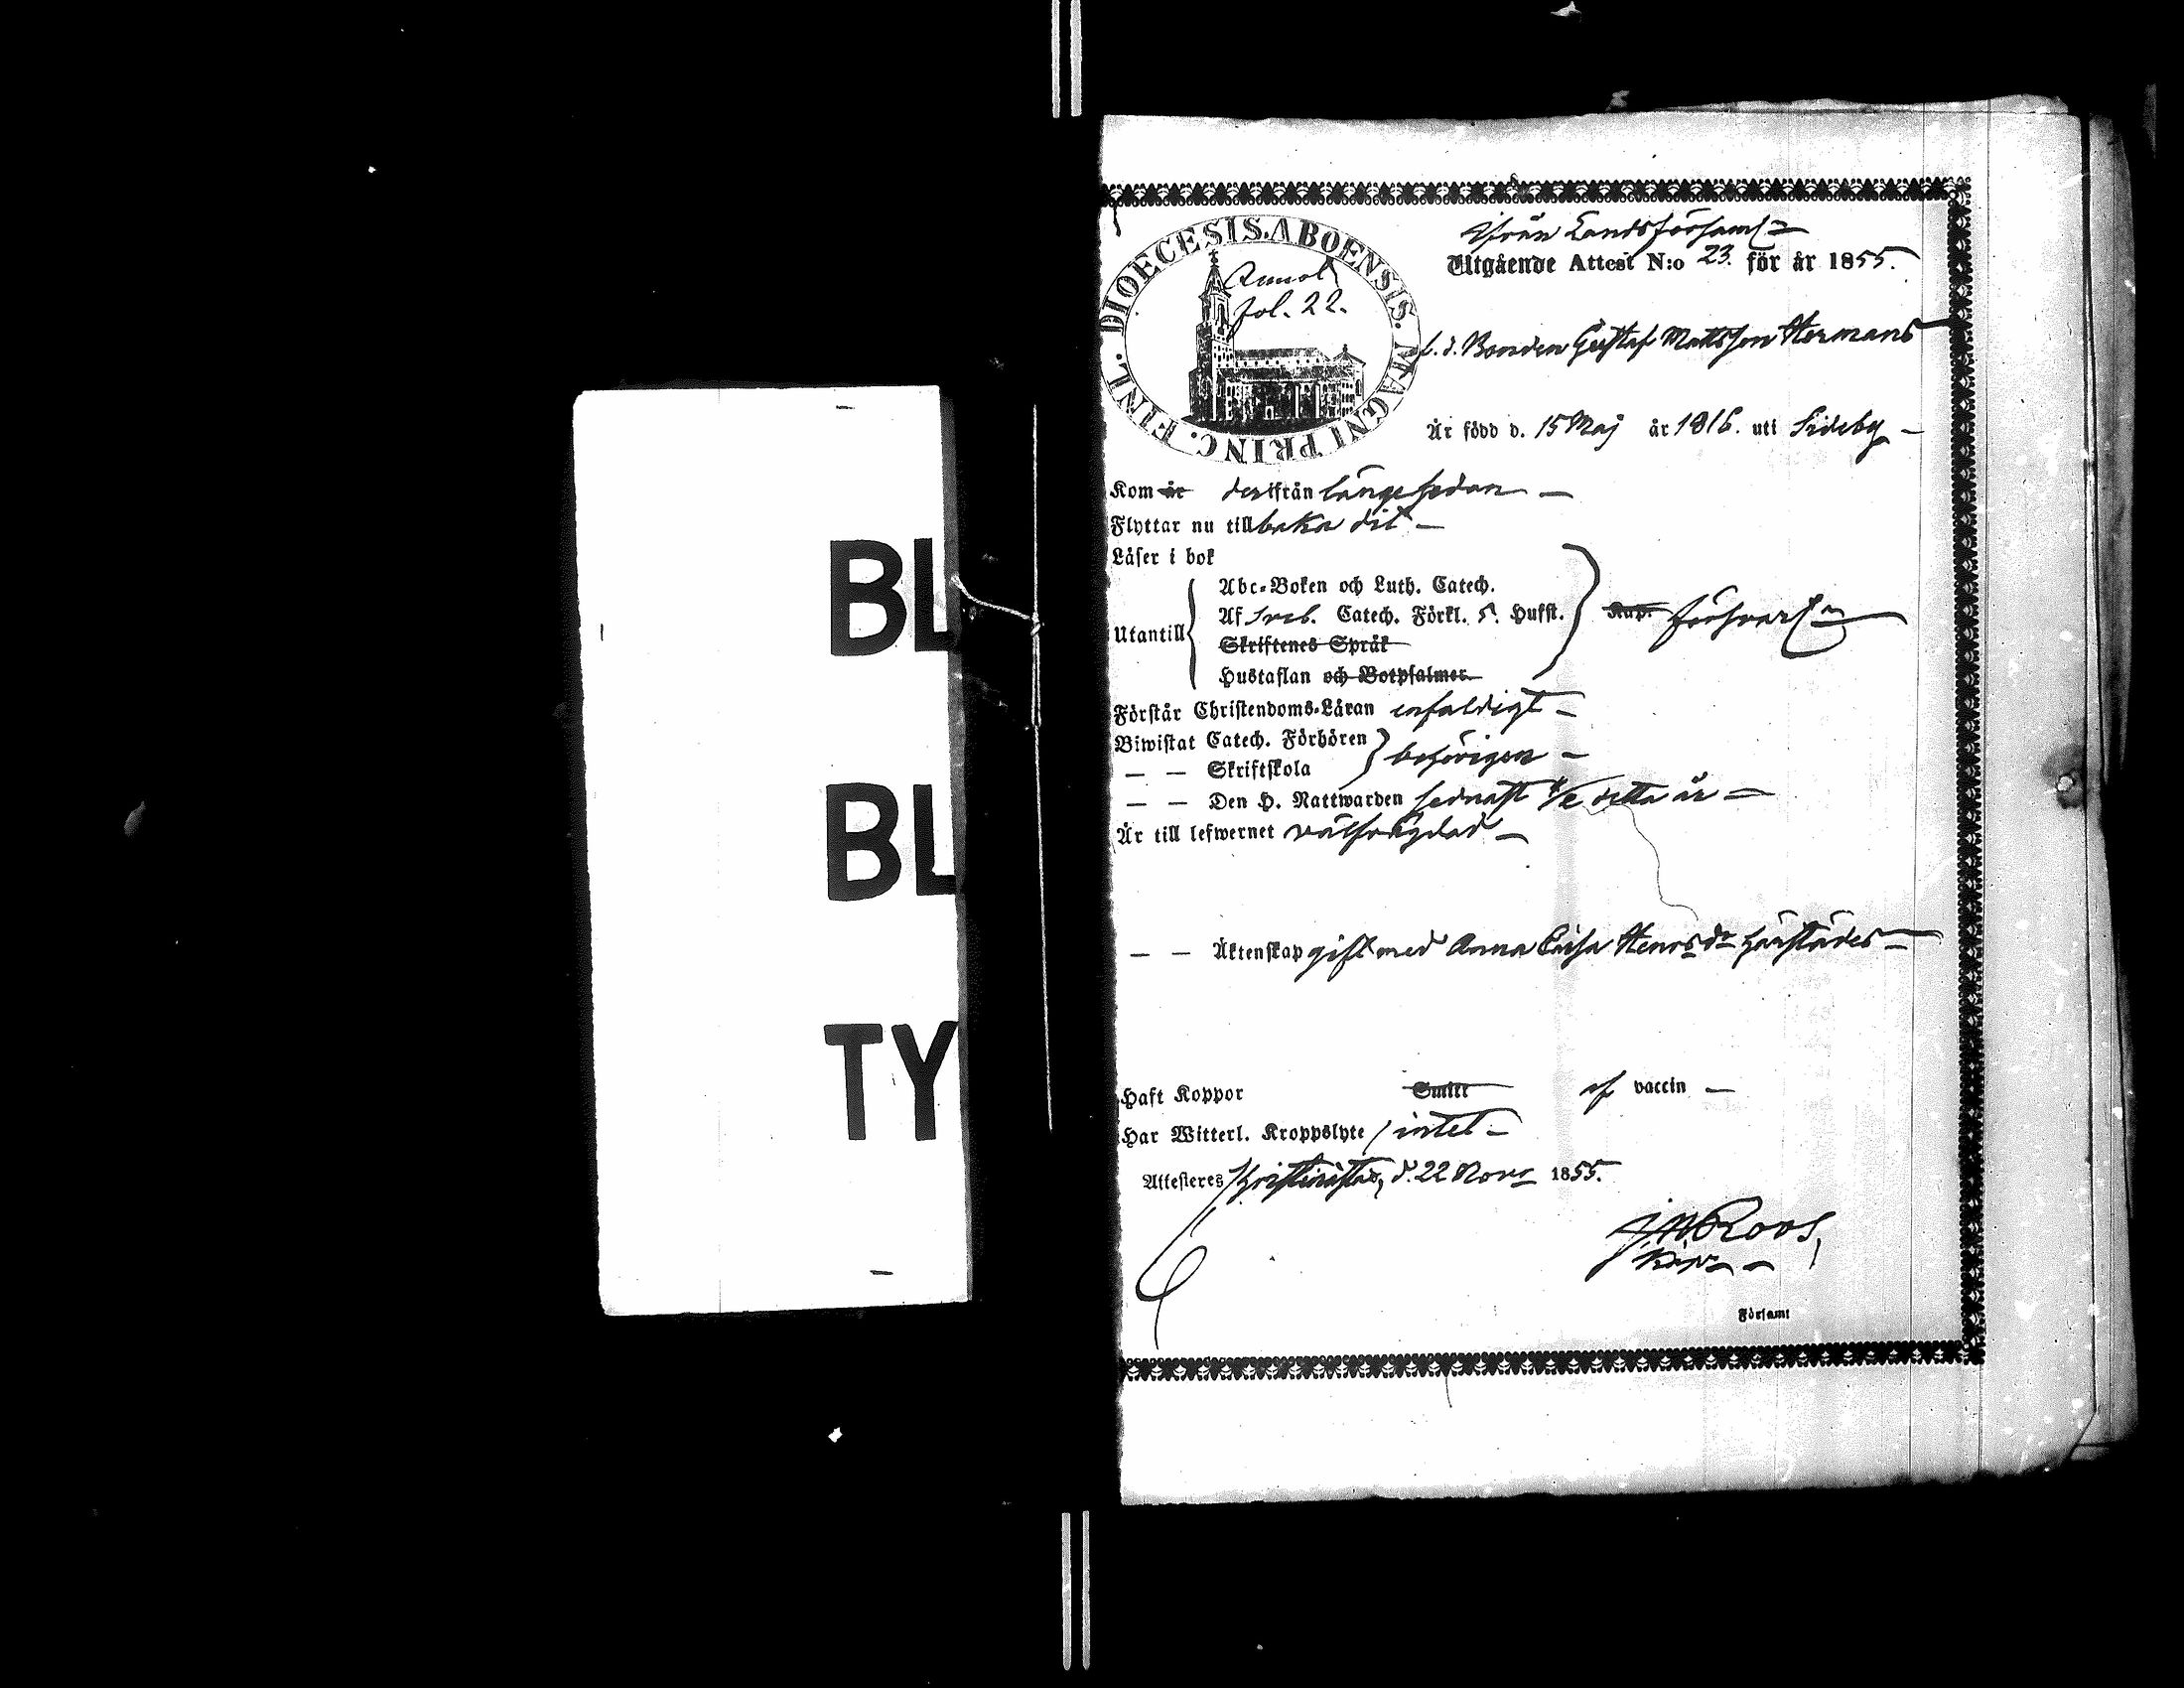 BL
BL
TY
DIOECESIS.ABOENSIS. MAGNI PRINC. FINL.
Annot
fol. 22.
ifrån Landsförsaml
Utgående Attest N:o 23. för år 1855.
f. d. Bonden Gustaf Mattsson Hermans
Är född d. 15 Maj år 1816. uti Sideby –
Kom år derifrån länge sedan –
Flyttar nu tillbaka dit –
Läser i bok
Abc-Boken och Luth. Catech.
Utantill
Af Sveb. Catech. Förkl. 5. Hufst.
Kap. försvarl
Skriftenes Språk
Hustaflan och Botpsalmer
Förstår Christendoms-Läran enfaldigt –
Biwistat Catech. Förhören
behörigen –
— — Skriftskola
— — Den H. Nattwarden sednast detta år –
Är till lefwernet välfrägdad –
— — Äktenskap gift med Anna Caisa Henrsdr härstädes –
Haft Koppor Smitt af vaccin –
Har Witterl. Kroppslyte intet –
Attesteres Kristinestad, d. 22 Nov 1855.
Roos,
Församl